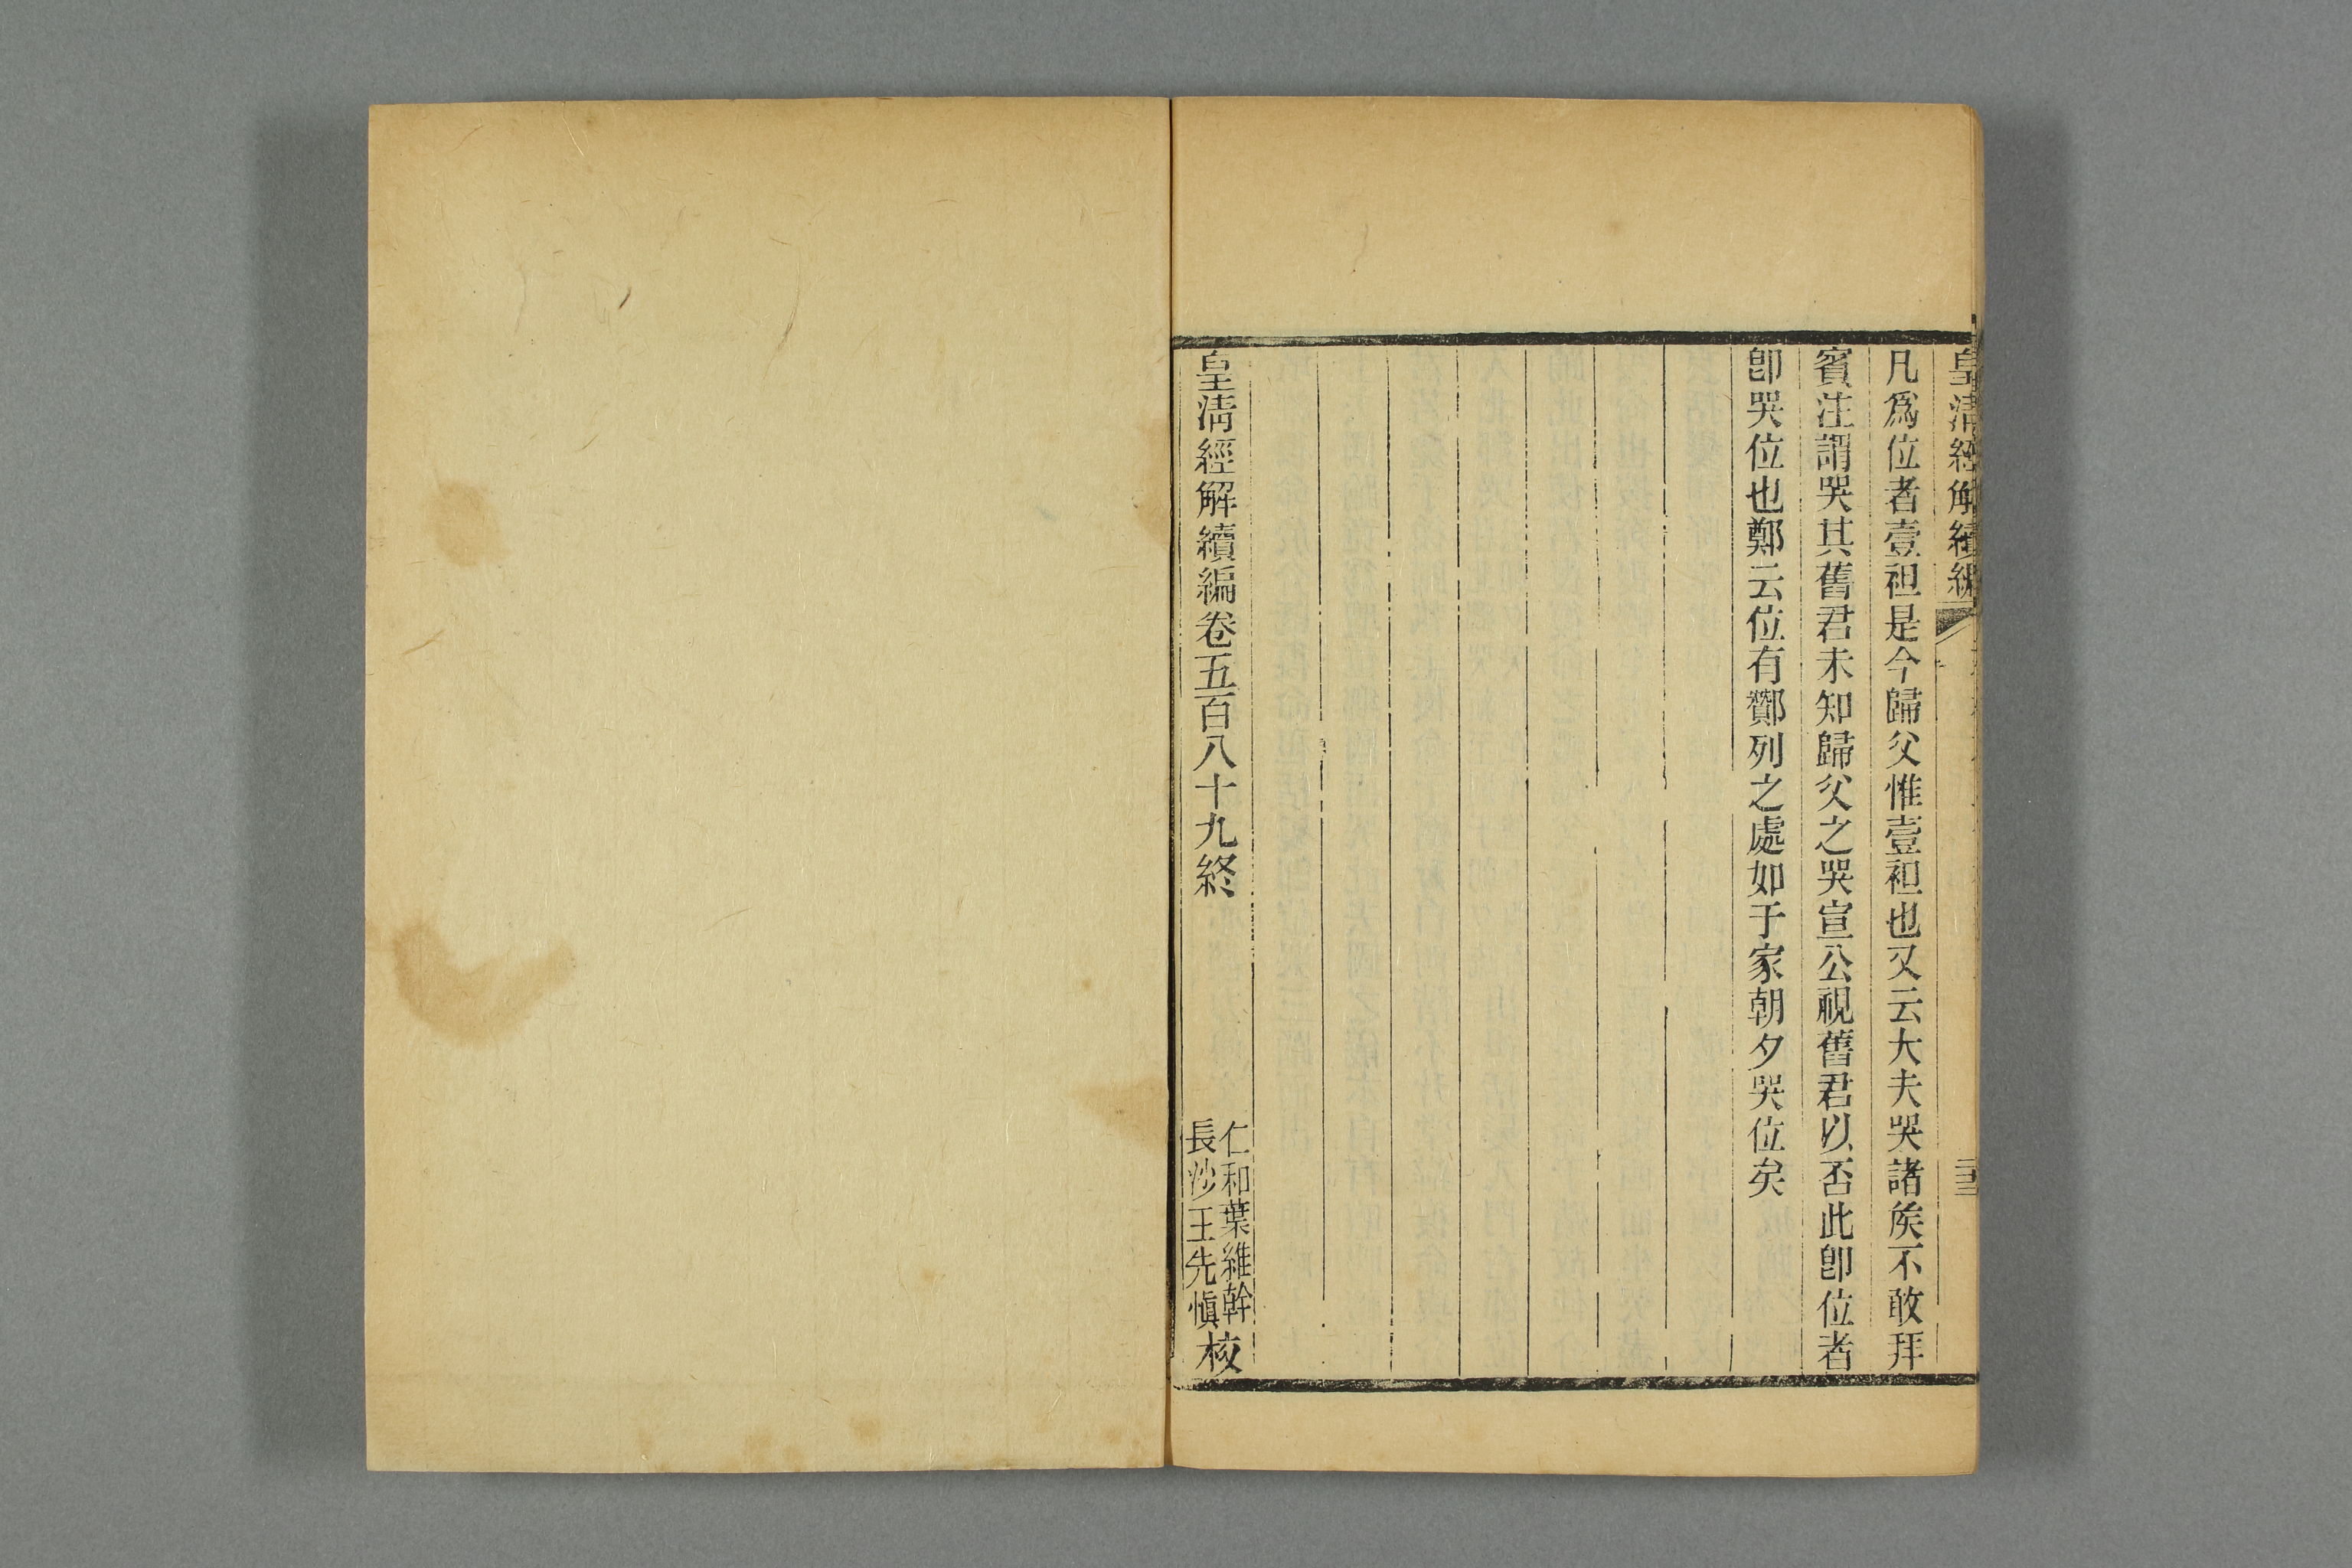 皇清經解續編
凡爲位者壹袒是今歸父惟壹袒也又云大夫哭諸矦不敢拜
賓注謂哭其舊君未知歸父之哭宣公視舊君以否此卽位者
卽哭位也鄭云位有酇列之處如于家朝夕哭位矣
皇清經解續編卷五百八十九終
仁和葉維幹
長沙王先愼
校